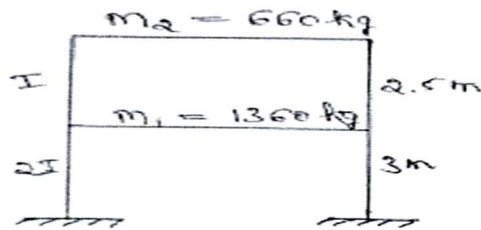 m₂ = 660 kg
I
2.5m
m₁ = 1360 kg
2I
3m